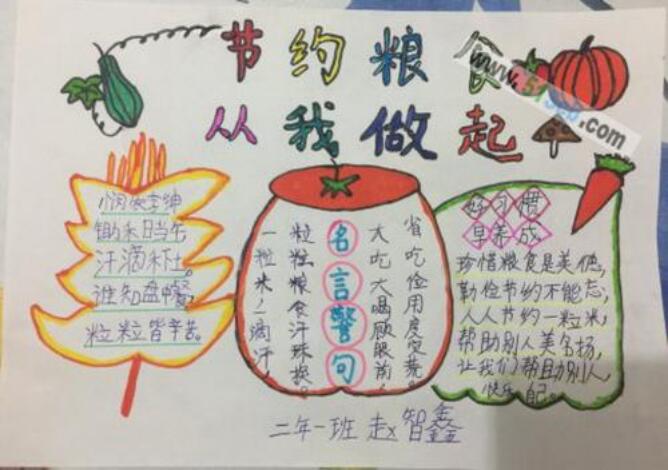 节约粮食
从我做起
悯农李绅
锄禾日当午
汗滴禾下土。
谁知盘中餐
粒粒皆辛苦。
名言警句
省吃俭用度灾荒。
大吃大喝顾眼前,
粒粒粮食汗珠换。
一粒米,一滴汗,
好习惯
早养成
珍惜粮食是美德,
勤俭节约不能忘,
人人节约一粒米,
帮助别人美名扬,
让我们帮助别人,
快乐自己。
二年一班 赵智鑫